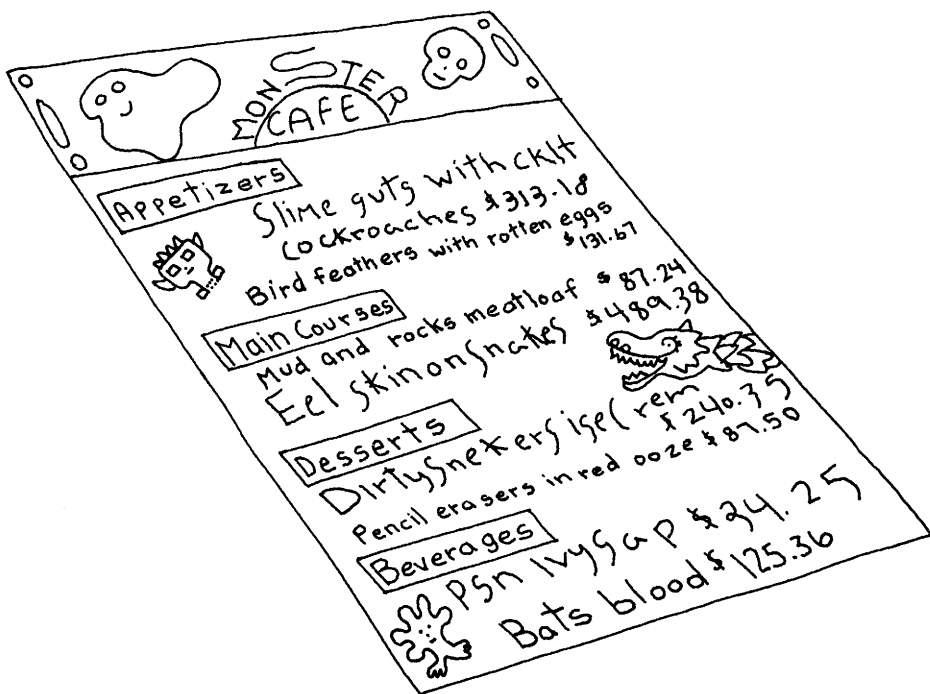 MONSTER
CAFE
Appetizers
Slime guts with cklt
cockroaches $313.18
Bird feathers with rotten eggs
$131.67
Main Courses
Mud and rocks meatloaf $87.24
Eel skin on snakes $489.38
Desserts
Dirty snekers isel rem
$240.35
Pencil erasers in red ooze $87.50
Beverages
Psn ivy sap $34.25
Bats blood $125.36